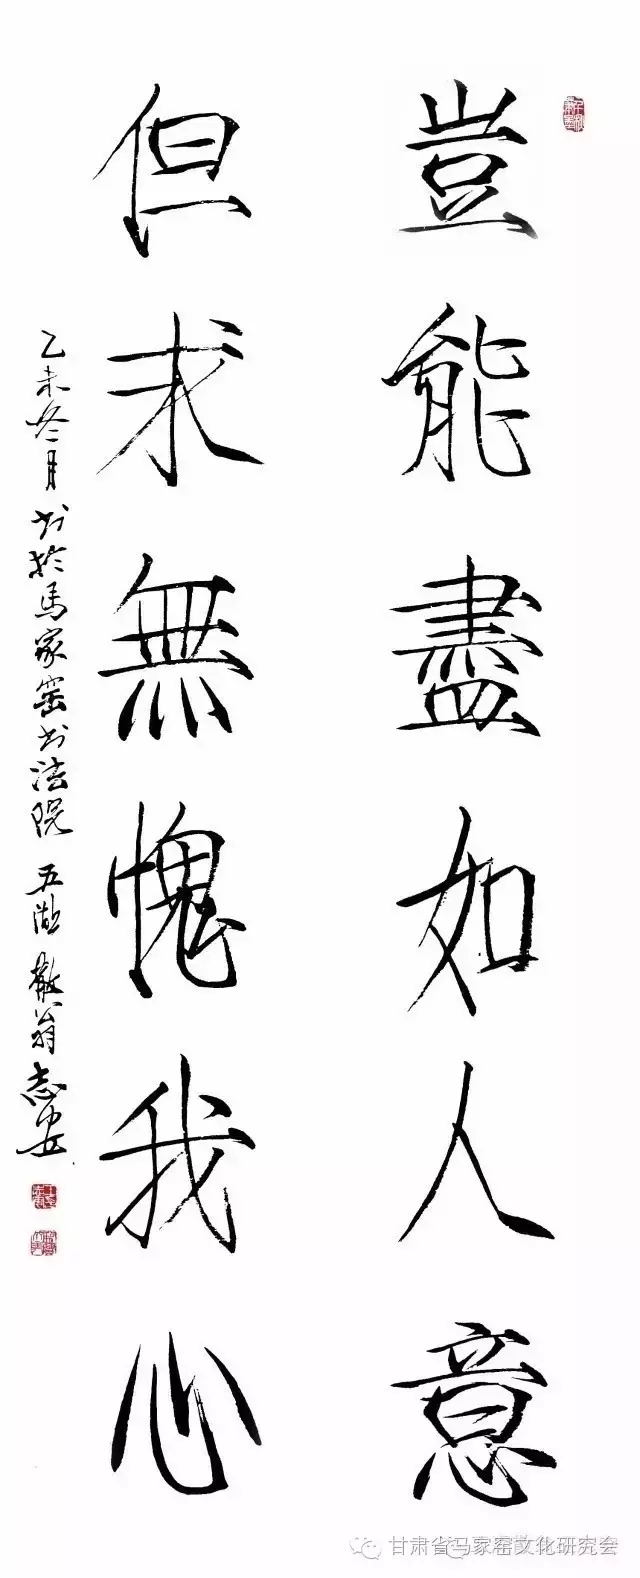 豈能盡如人意
但求無愧我心
乙未冬月书於馬家窑书法院五湖散翁志安
甘肃省马家窑文化研究会